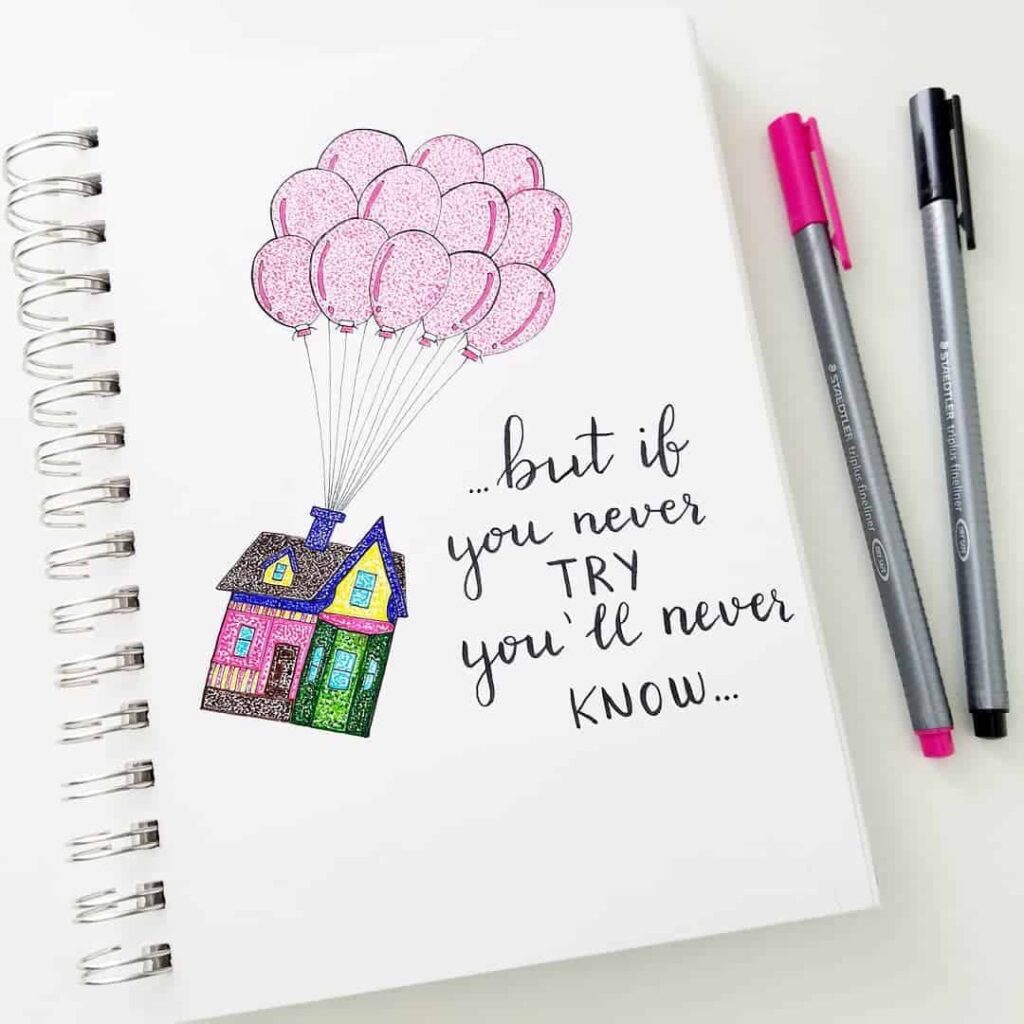 ...but if
you never
TRY
you'll never
KNOW...
STAEDTLER triplus fineliner
DRY SAFE
STAEDTLER triplus fineliner
DRY SAFE